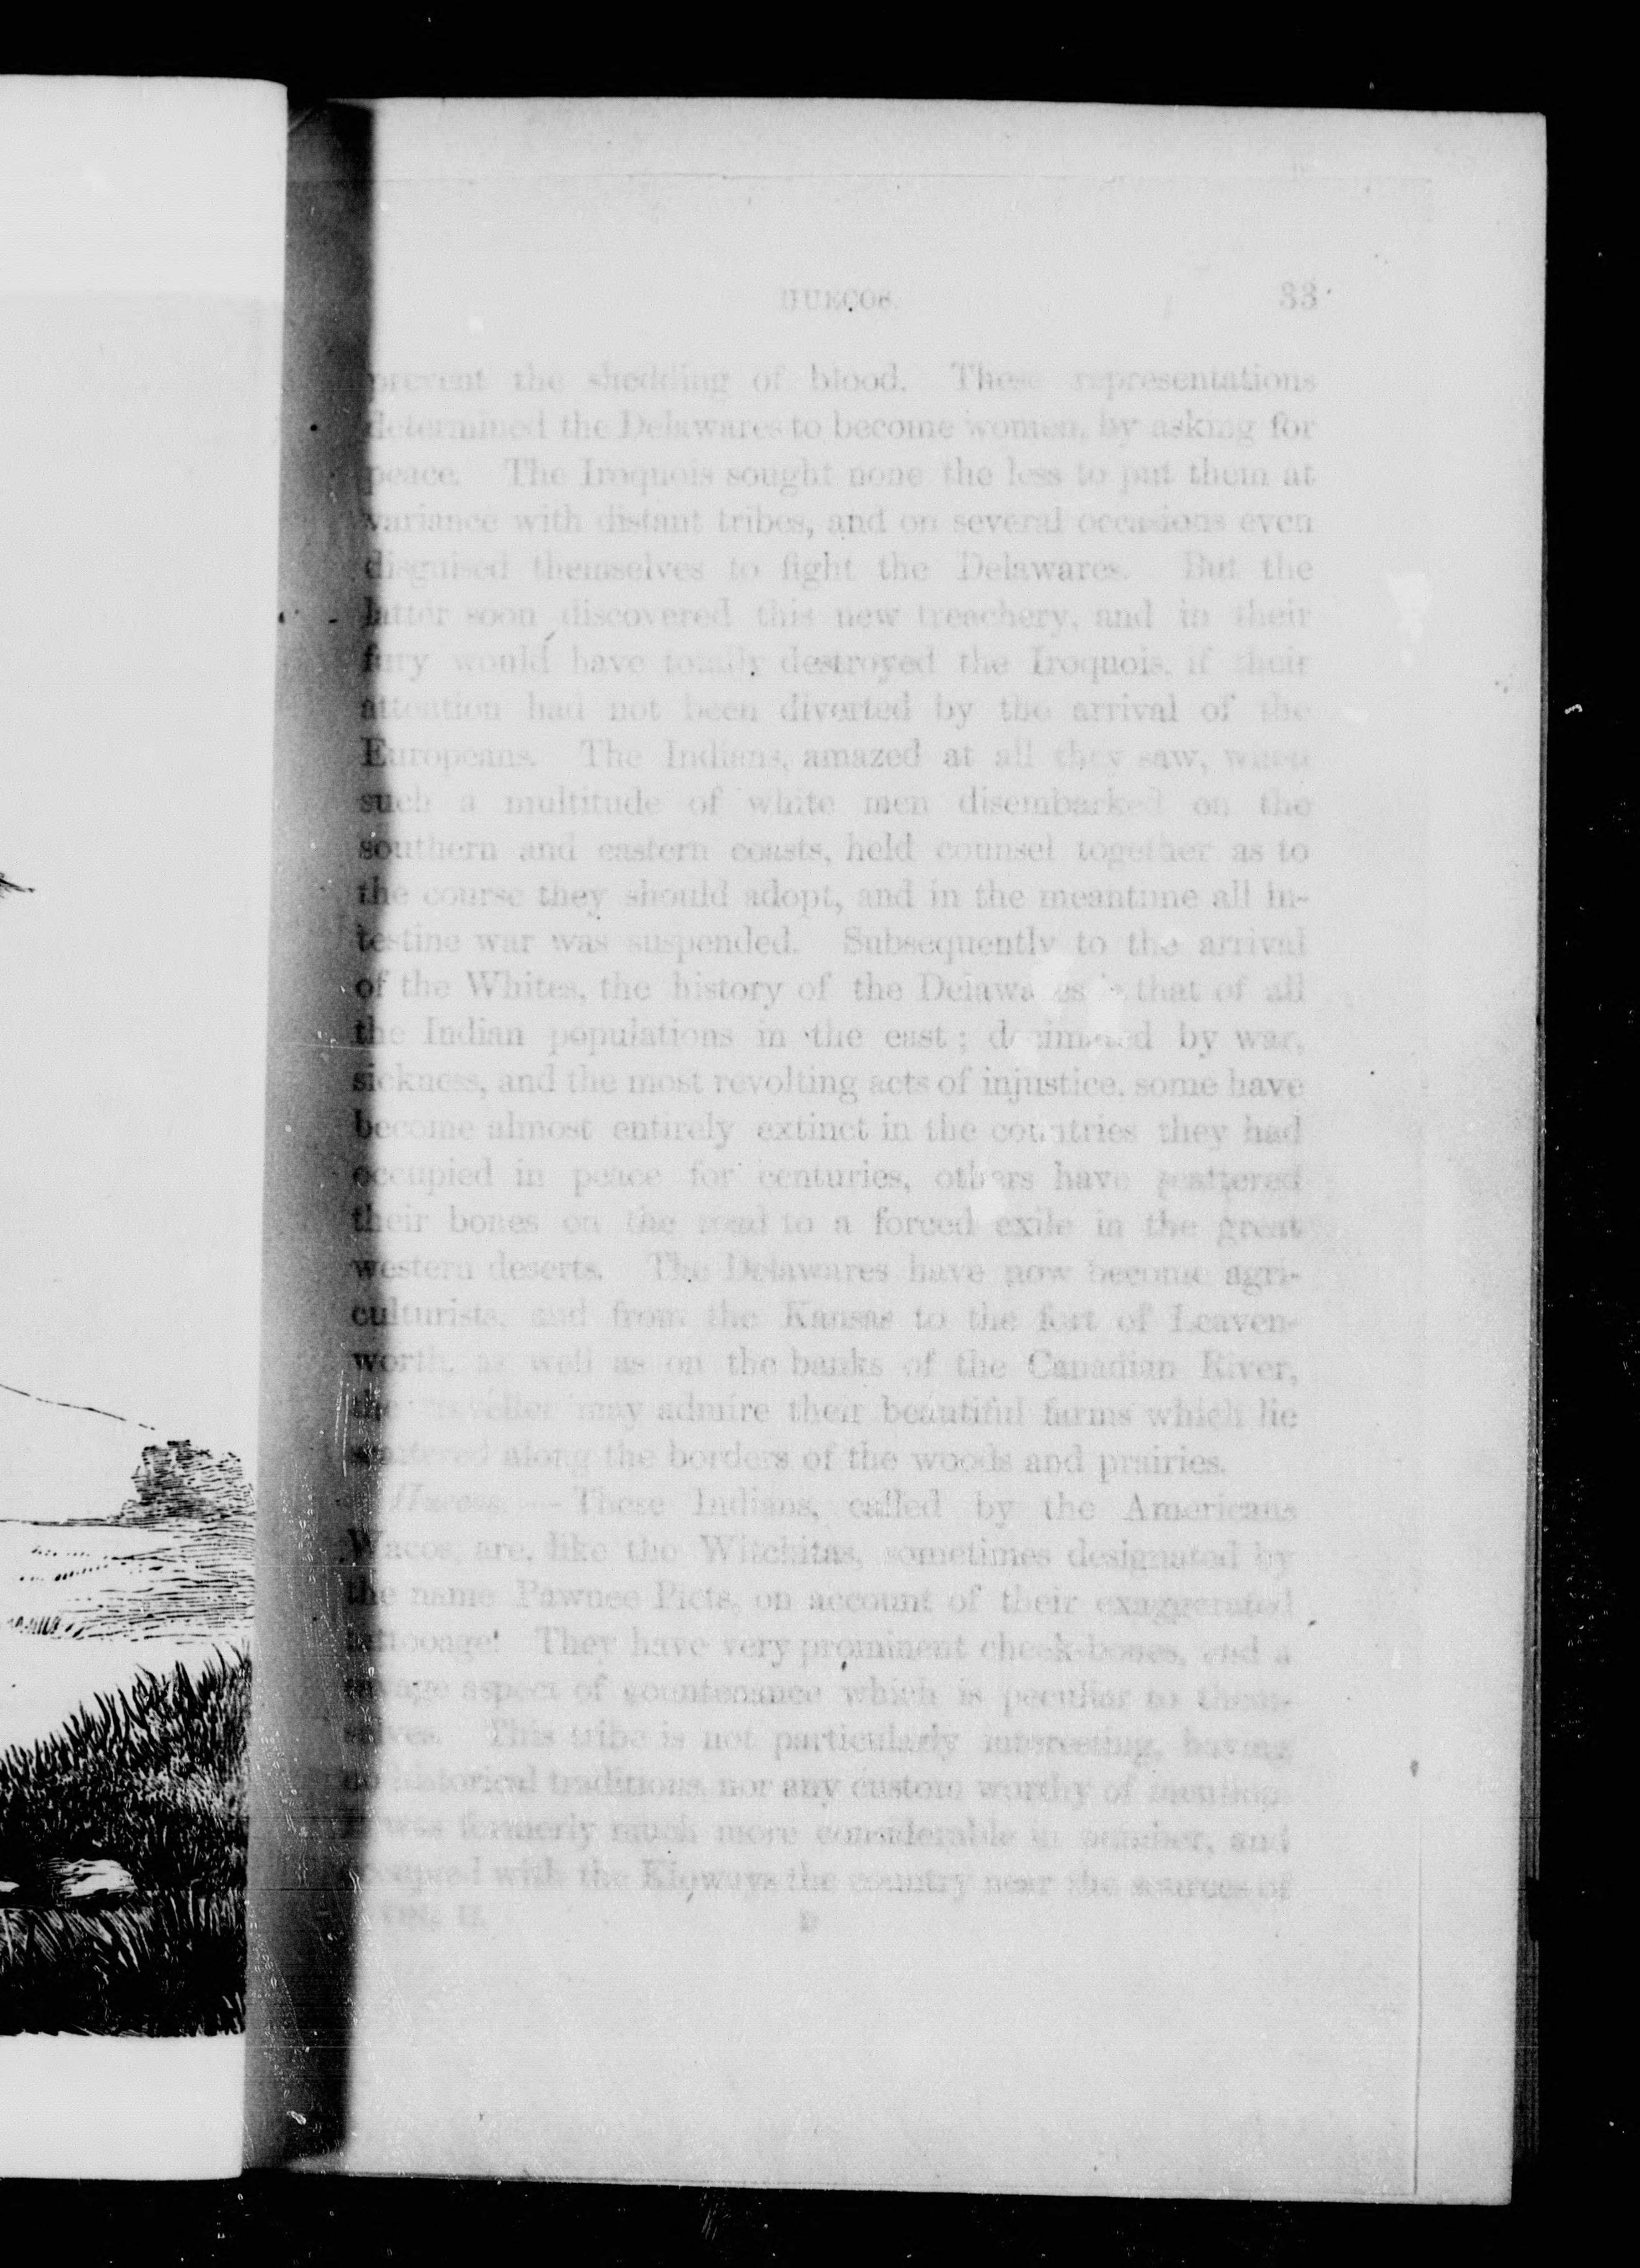 HUECOS.
33
prevent the shedding of blood. These representations
determined the Delawares to become women, by asking for
peace. The Iroquois sought none the less to put them at
variance with distant tribes, and on several occasions even
disguised themselves to fight the Delawares. But the
latter soon discovered this new treachery, and in their
fury would have totally destroyed the Iroquois, if their
attention had not been diverted by the arrival of the
Europeans. The Indians, amazed at all they saw, when
such a multitude of white men disembarked on the
southern and eastern coasts, held counsel together as to
the course they should adopt, and in the meantime all in-
testine war was suspended. Subsequently to the arrival
of the Whites, the history of the Delawares is that of all
the Indian populations in the east; decimated by war,
sickness, and the most revolting acts of injustice, some have
become almost entirely extinct in the countries they had
occupied in peace for centuries, others have scattered
their bones on the road to a forced exile in the great
western deserts. The Delawares have now become agri-
culturists, and from the Kansas to the fort of Leaven-
worth, as well as on the banks of the Canadian River,
the traveller may admire their beautiful farms which lie
scattered along the borders of the woods and prairies.
Huecos. — These Indians, called by the Americans
Wacos, are, like the Witchitas, sometimes designated by
the name Pawnee Picts, on account of their exaggerated
tattooage. They have very prominent cheek-bones, and a
savage aspect of countenance which is peculiar to them-
selves. This tribe is not particularly interesting, having
no historical traditions, nor any custom worthy of mention.
It was formerly much more considerable in number, and
occupied with the Kioways the country near the sources of
VOL. II.
D